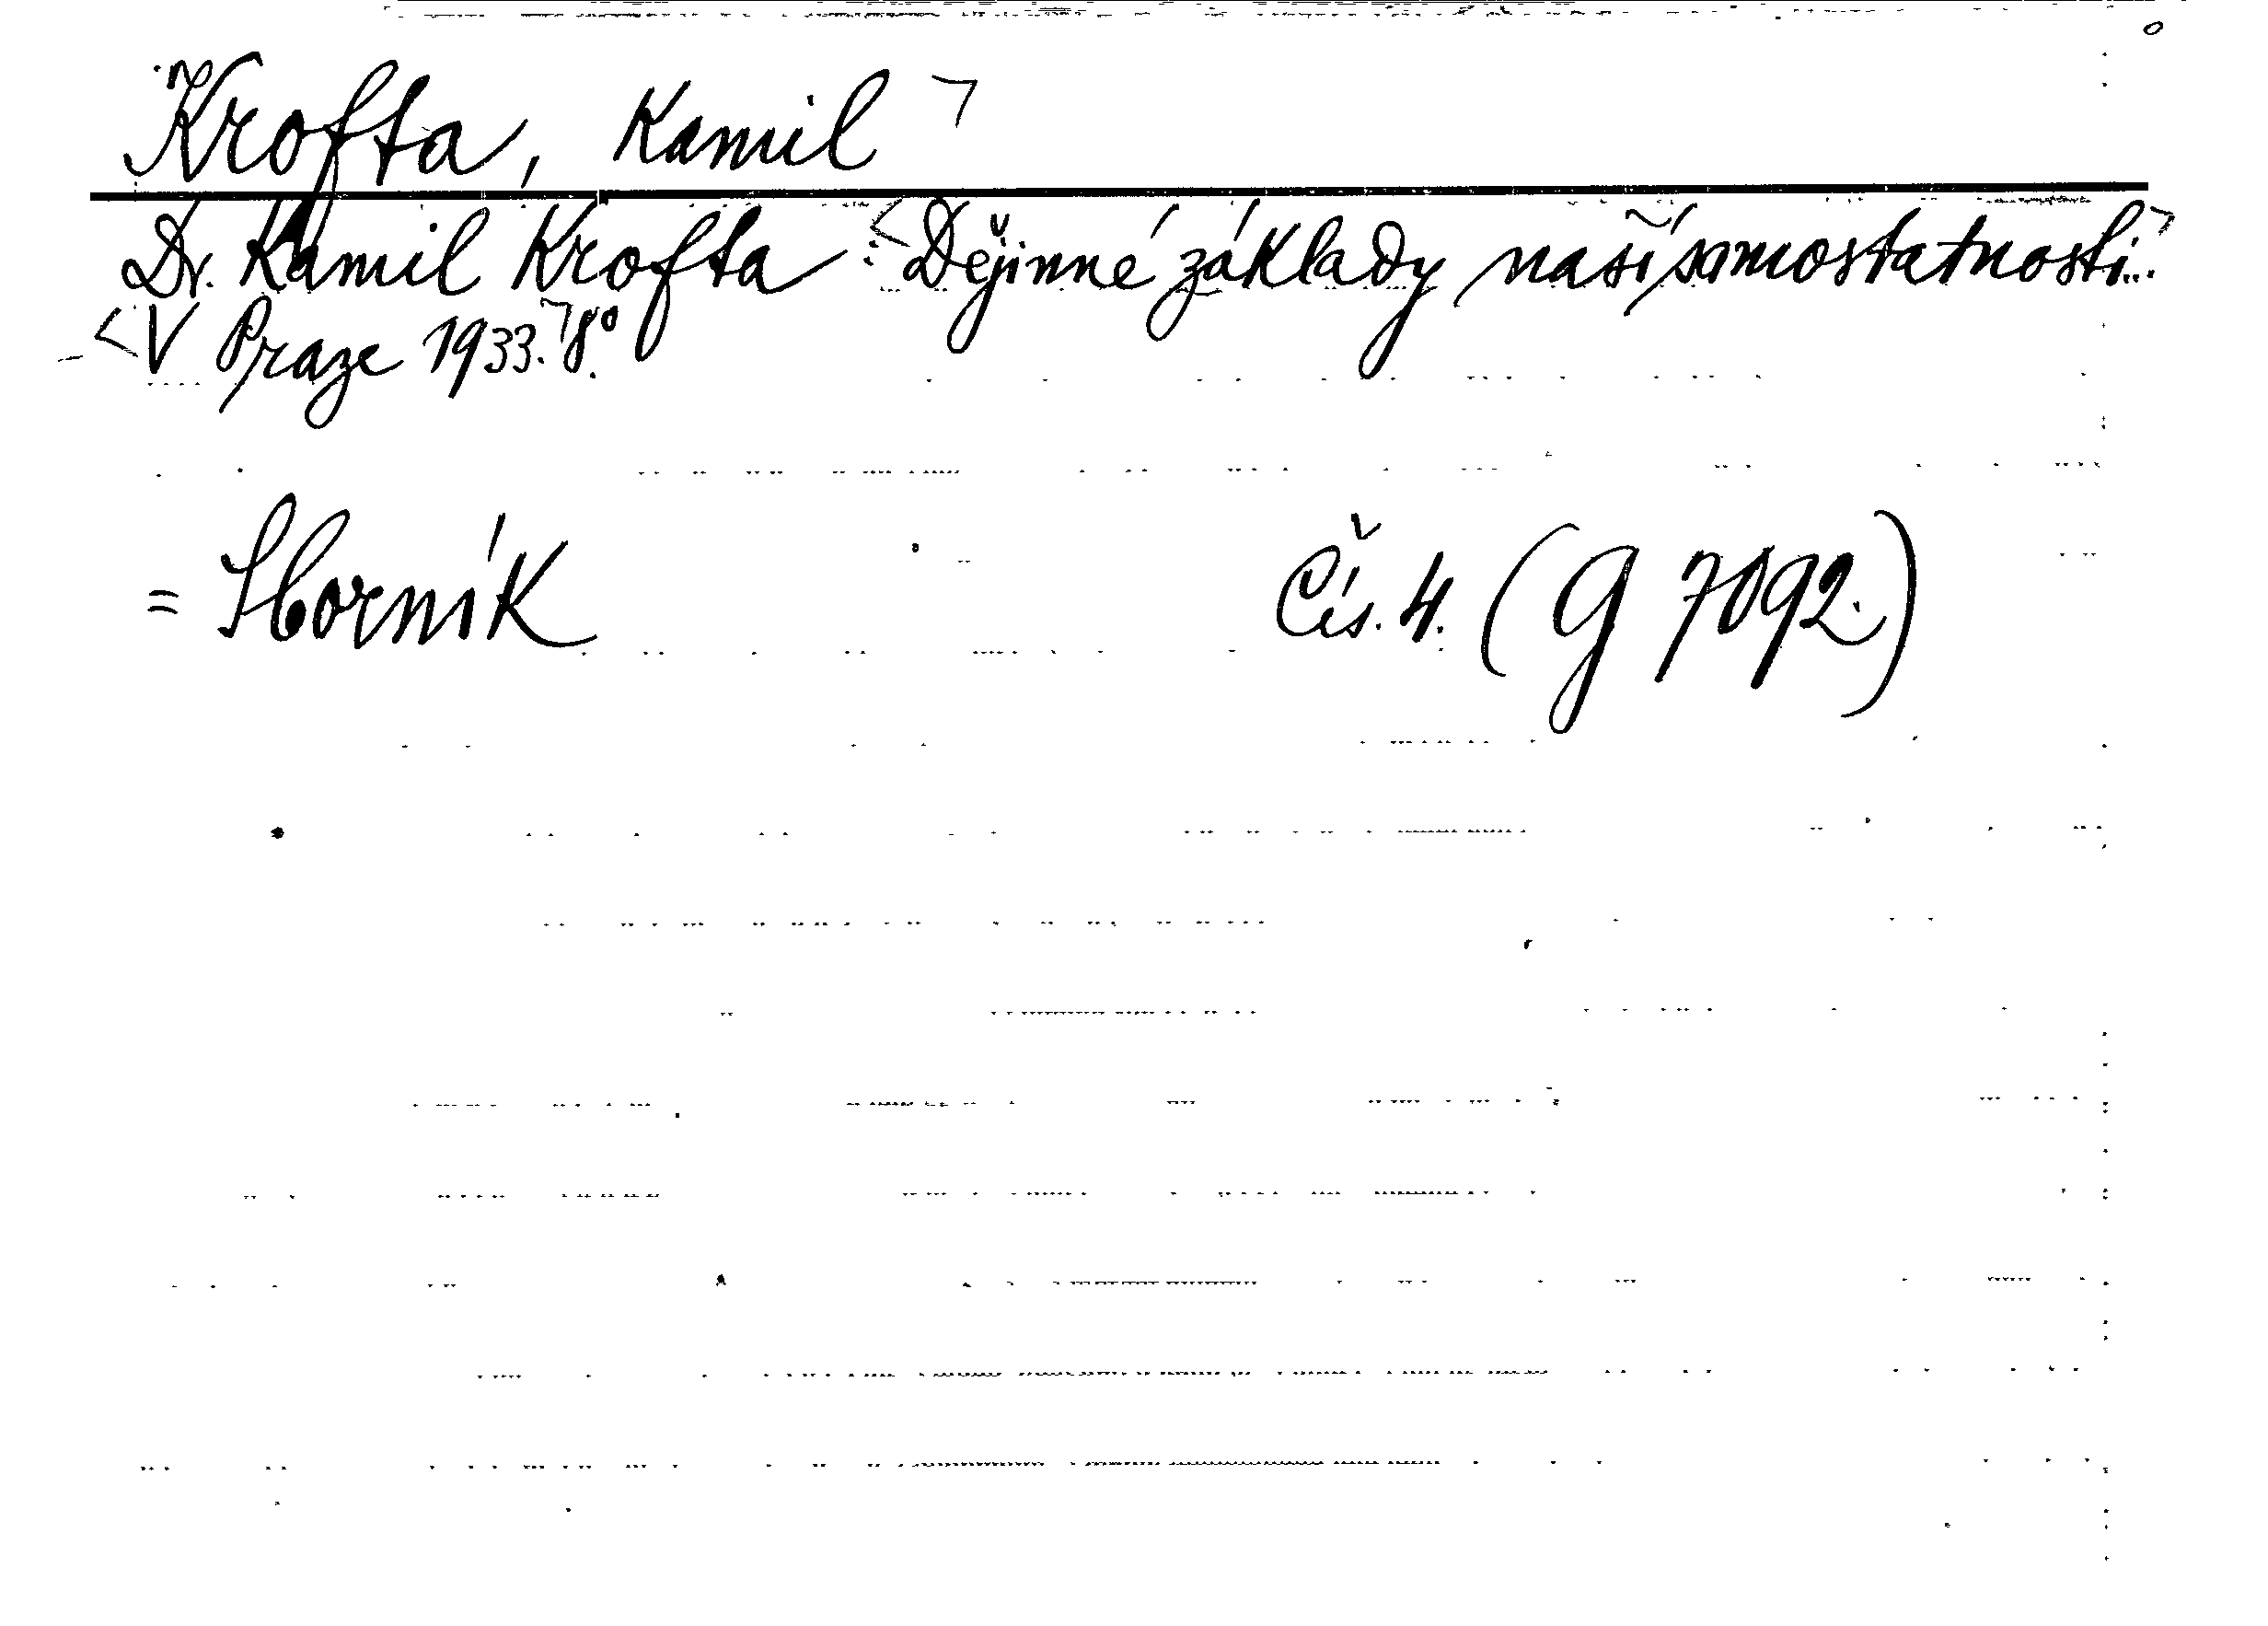 Krofta, Kamil
Dr. Kamil Krofta: Dějinné základy naší samostatnosti...
V Praze 1933. 8°.
= Sborník Čís. 4. (G 7092.)